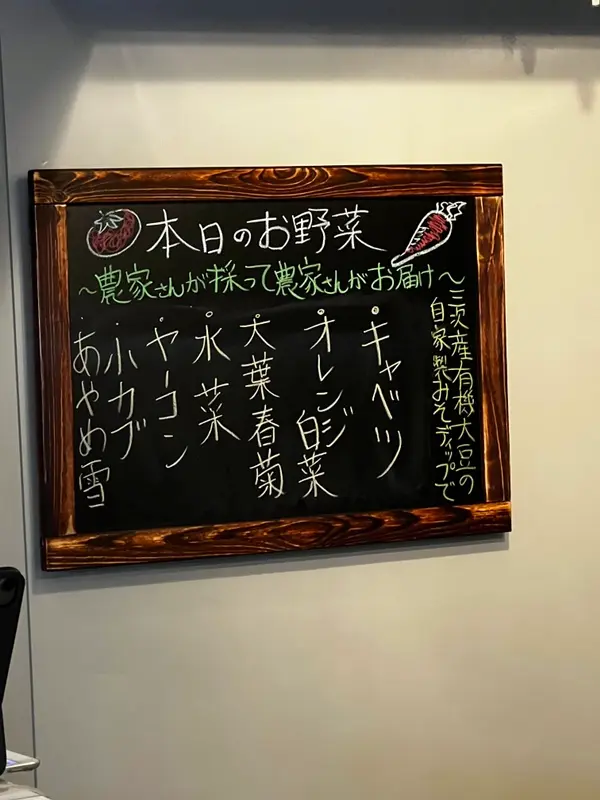 本日のお野菜
~農家さんが採って農家さんがお届け~
三次産有機大豆の
自家製みそディップで
・キャベツ
・オレンジ白菜
・大葉春菊
・水菜
・ヤーコン
・小カブ
・あやめ雪